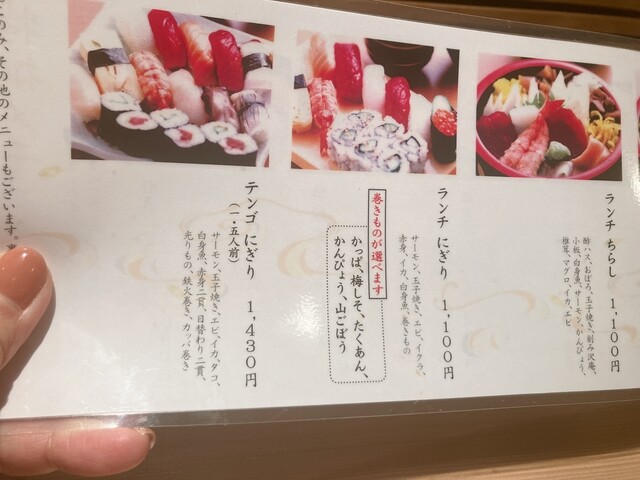 ランチ ちらし 1,100円
酢ハス、おぼろ、玉子焼き、刻み沢庵、
小板、白身魚、サーモン、かんぴょう、
椎茸、マグロ、イカ、エビ
ランチ にぎり 1,100円
サーモン、玉子焼き、エビ、イクラ、
赤身、イカ、白身魚、巻きもの
巻きものが選べます
かっぱ、梅しそ、たくあん、
かんぴょう、山ごぼう
テンゴ にぎり 1,430円
(一・五人前)
サーモン、玉子焼き、エビ、イカ、タコ、
白身魚、赤身二貫、日替わり二貫、
光りもの、鉄火巻き、カッパ巻き
のみ、その他のメニューもございます。